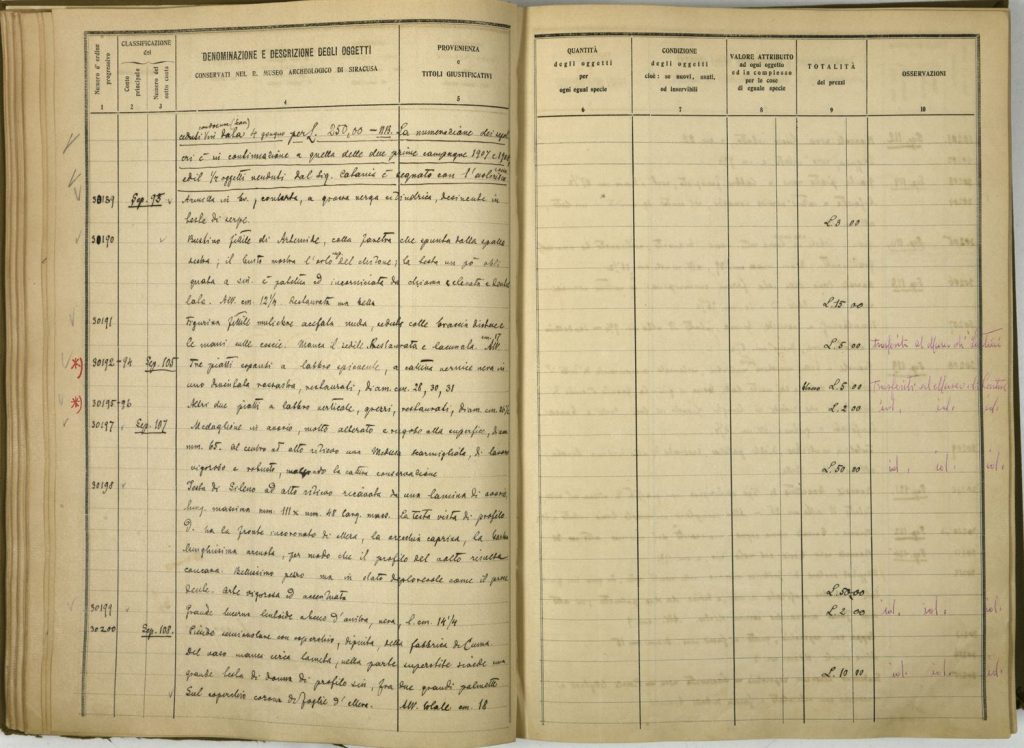 Numero d'ordine progressivo
CLASSIFICAZIONE
del
Conto principale
Numero del sotto conto
DENOMINAZIONE E DESCRIZIONE DEGLI OGGETTI
CONSERVATI NEL R. MUSEO ARCHEOLOGICO DI SIRACUSA
PROVENIENZA
e
TITOLI GIUSTIFICATIVI
1 2 3 4 5
data 4 giugno per L. 250,00 — NB. La numerazione dei sepol
cri è in continuazione a quella delle due prime campagne 1907 e
ed il 1/2 oggetti venduti dal Sig. Catania è segnato con l'
30189 Sep. 95 Armilla in br., contorta, a grossa verga cilindrica, desinente in
teste di serpe.
30190 Bustino fittile di Artemide, colla faretra che spunta dalla spalla
destra; il busto mostra l'orlo del chitone; la testa un pò obli
quata a sin. è patetica ed incorniciata da chioma elevata e
Alt. cm. 12 1/4. Restaurata ma bella
30191 Figurina fittile muliebre acefala nuda, seduta colle braccia distese e
le mani sulle coscie. Manca il sedile. Restaurata e lacunata. Alt.
*) 30192-94 Sep. 105 Tre piatti espansi a labbro sporgente, a cattiva vernice nera in
uno rossastra, restaurati, diam. cm. 28, 30, 31
*) 30195-96 Altri due piatti a labbro verticale, restaurati, diam. cm.
30197 Sep. 107 Medaglione in avorio, molto alterato e rugoso alla superfice, diam
mm. 65. Al centro ad alto rilievo una Medusa scarmigliata, di lavoro
vigoroso e robusto, malgrado la cattiva conservazione
30198 Testa di Sileno ad alto rilievo ricavata da una lamina di avorio
lung. massima mm. 111 x mm. 48 larg. mass. La testa vista di profilo
D. ha la fronte incoronata di edera, la orecchia caprina, la barba
lunghissima arcuata, per modo che il profilo del volto risulta
concavo. Bellissimo pezzo ma in stato deplorevole come il prece
dente. Arte vigorosa ed accentuata
30199 Grande lucerna ansa d'anitra, nera, l. cm. 14 1/4
30200 Sep. 108. con coperchio, dipinta, della fabbrica di Cuma
Del vaso manca circa la metà; nella parte superstite siede una
grande testa di donna di profilo sin., fra due grandi palmette
Sul coperchio corona di foglie d'edera. Alt. totale cm. 18
QUANTITÀ
degli oggetti
per
ogni egual specie
CONDIZIONE
degli oggetti
cioè: se nuovi, usati,
od inservibili
VALORE ATTRIBUITO
ad ogni oggetto
ed in complesso
per le cose
di eguale specie
TOTALITÀ
dei prezzi
OSSERVAZIONI
6 7 8 9 10
L. 3 00
L. 15 00
L. 5 00 Trasferita al Museo di Lentini
L. 5 00 Trasferiti al Museo di Lentini
L. 2 00 id. id. id.
L. 50 00 id. id. id.
L. 50 00
L. 2 00 id. id. id.
L. 10 00 id. id. id.